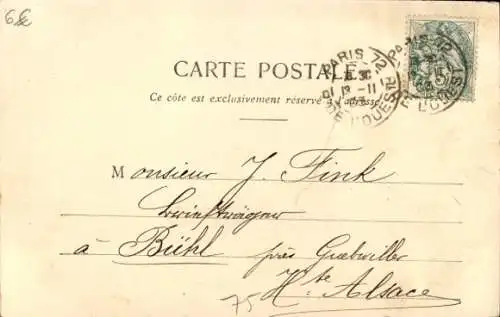 CARTE POSTALE
Ce côté est exclusivement réservé à l'adresse
PARIS 72
DE L'OUEST
PARIS 72
L'OUEST
Monsieur J. Fink
Briefträger
à Bühl près Guebwiller
Hte Alsace
75